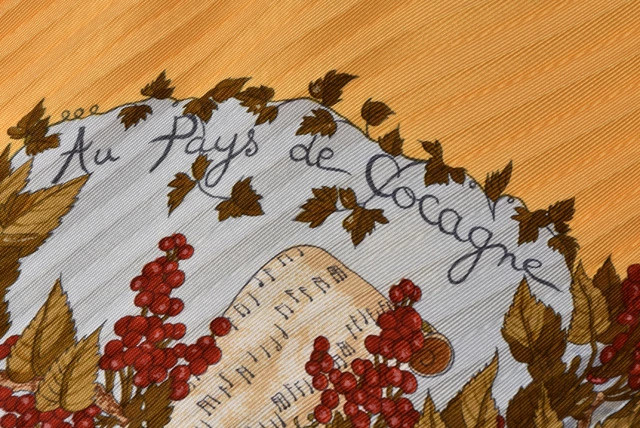 Au Pays de Cocagne